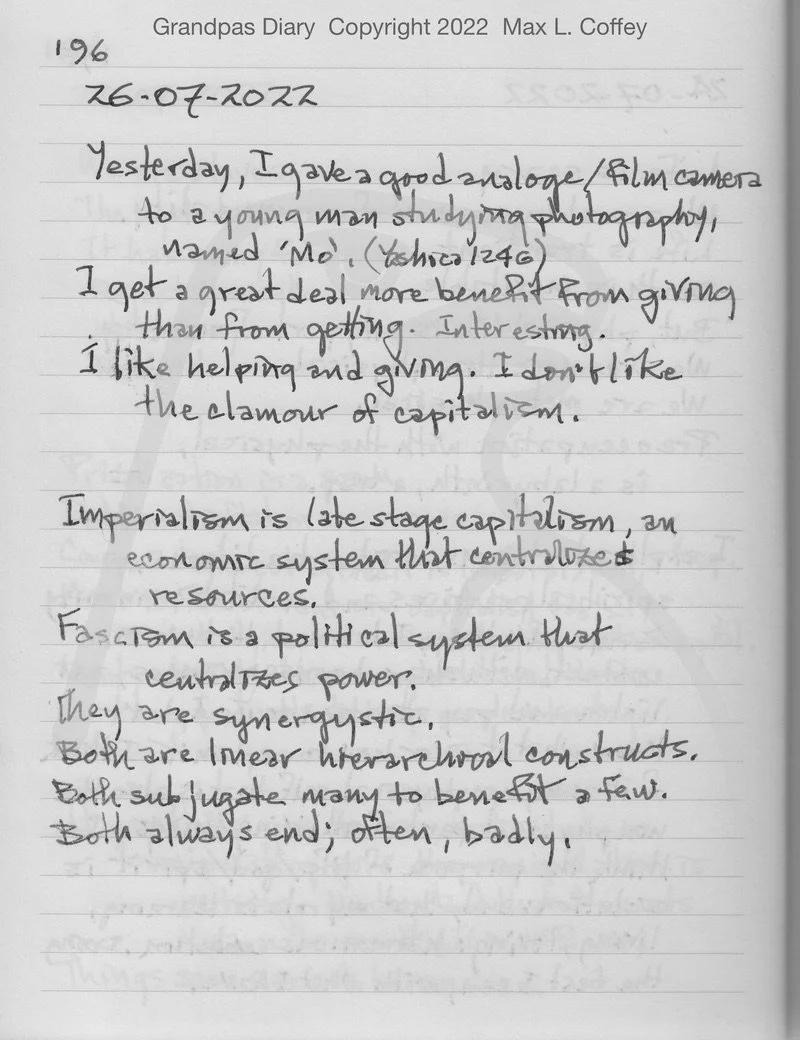 Grandpas Diary Copyright 2022 Max L. Coffey
196
26-07-2022
Yesterday, I gave a good analoge/film camera
to a young man studying photography,
named 'Mo'. (Yashica 124G)
I get a great deal more benefit from giving
than from getting. Interesting.
I like helping and giving. I don't like
the clamour of capitalism.
Imperialism is late stage capitalism, an
economic system that centralizes
resources.
Fascism is a political system that
centralizes power.
They are synergystic.
Both are linear hierarchical constructs.
Both subjugate many to benefit a few.
Both always end; often, badly.